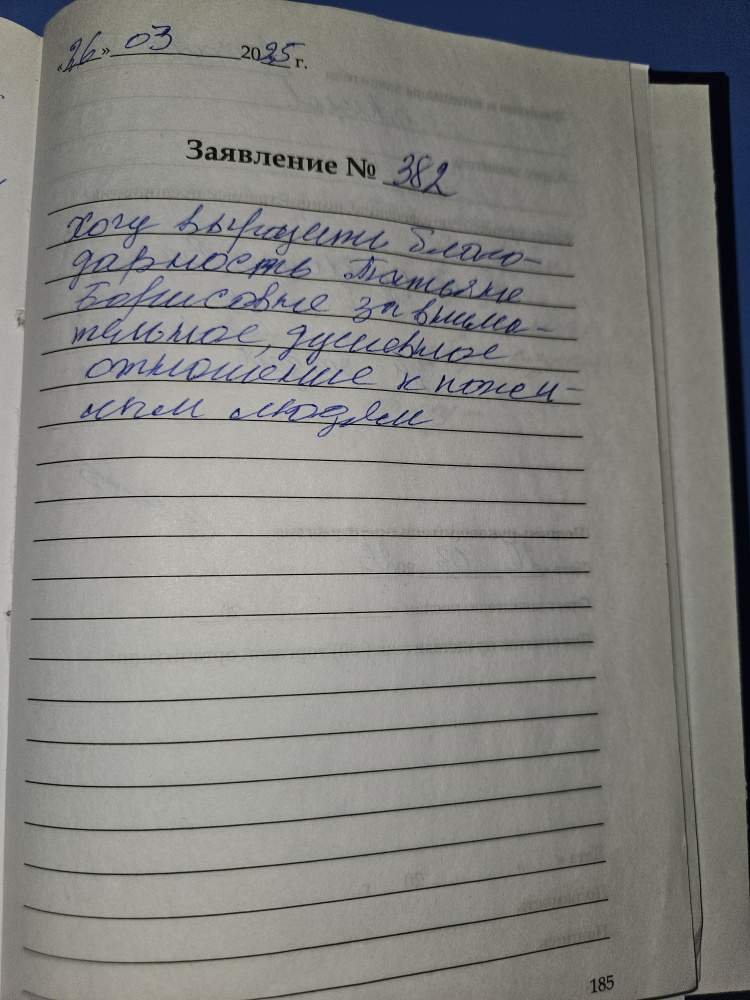 «26» 03 2025 г.
Заявление № 382
Хочу выразить благо-
дарность Татьяне
Борисовне за внима-
тельное, душевное
отношение к пожи-
лым людям
185